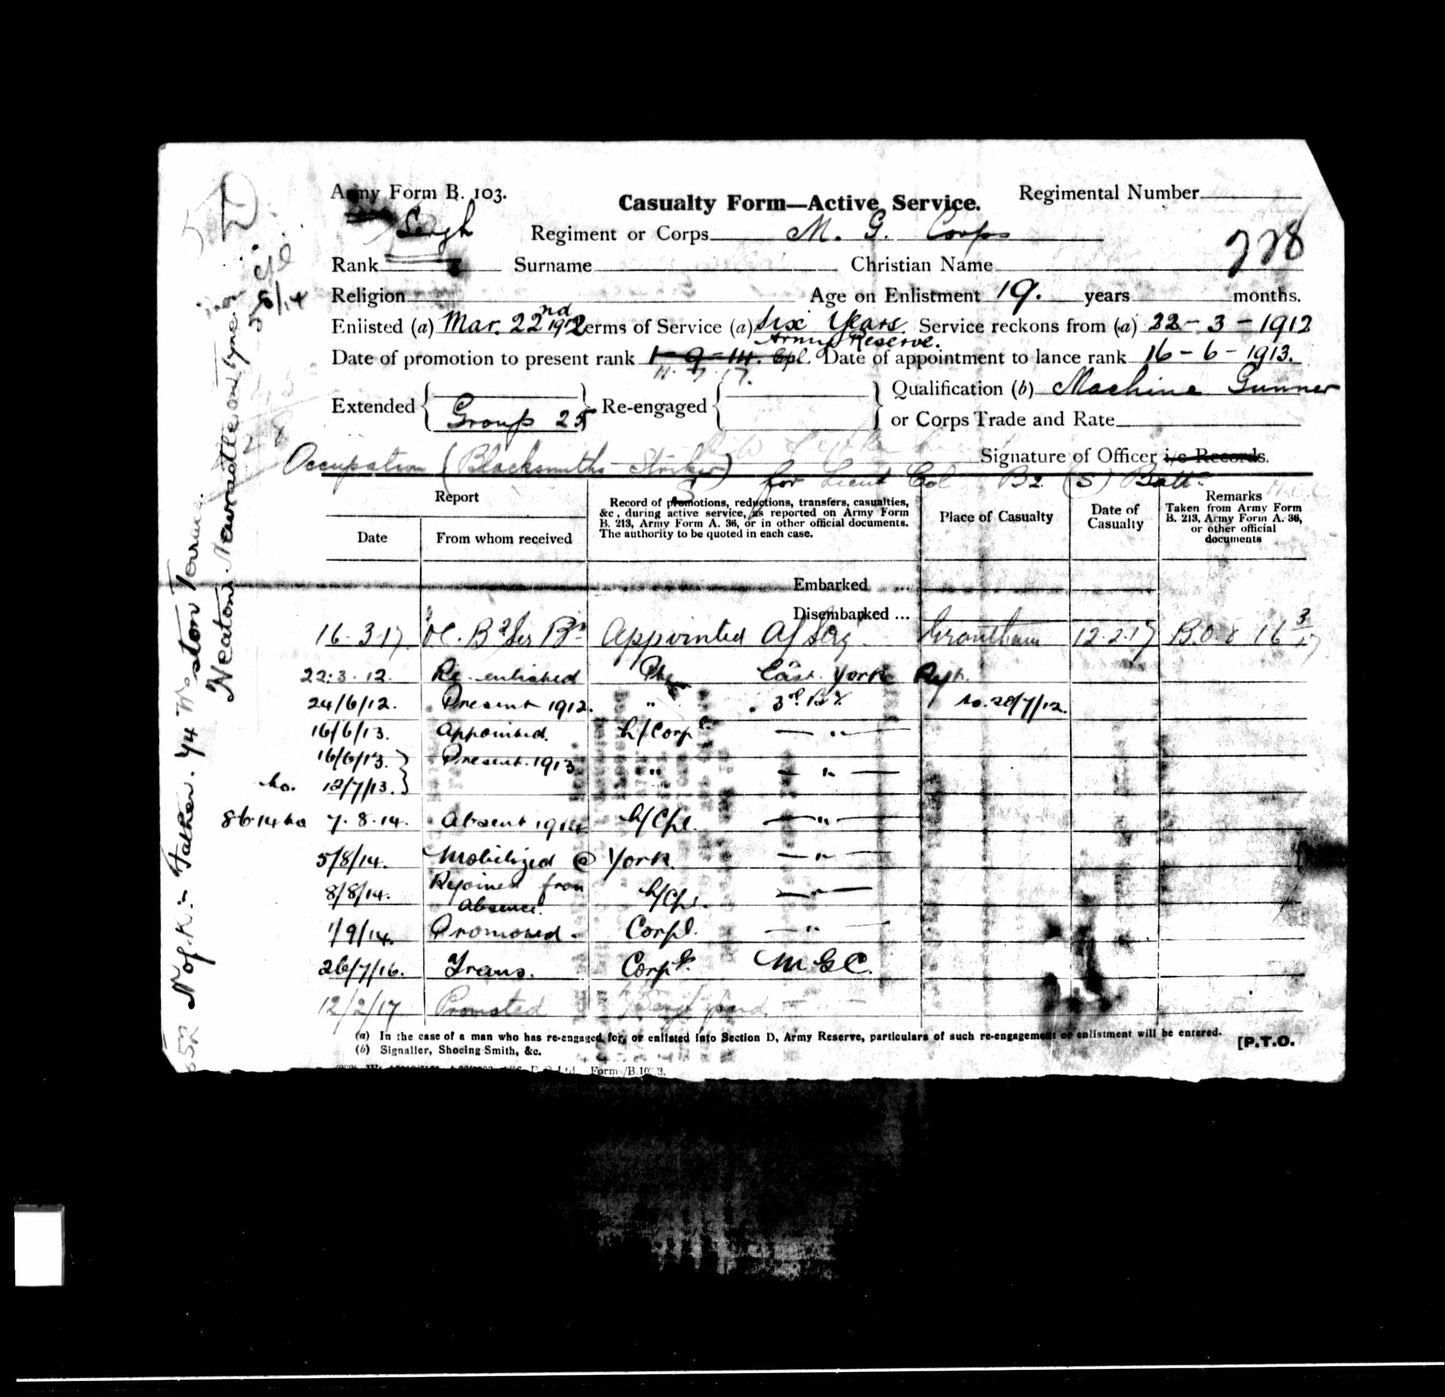 Army Form B. 103.
Casualty Form—Active Service.
Regimental Number
Regiment or Corps M. G. Corps
228
Rank Sergt Surname Christian Name
Religion Age on Enlistment 19. years months.
Enlisted (a) Mar. 22nd 1912 Terms of Service (a) Six Years Army Reserve. Service reckons from (a) 22-3-1912
Date of promotion to present rank 1-9-14. Cpl. Date of appointment to lance rank 16-6-1913.
Extended { Group 25 } Re-engaged { } Qualification (b) Machine Gunner
or Corps Trade and Rate
Occupation (Blacksmiths Striker) Signature of Officer i/c Records.
for Lieut Col B2 (S) Batt.
Report
Date
From whom received
Record of promotions, reductions, transfers, casualties, &c., during active service, as reported on Army Form B. 213, Army Form A. 36, or in other official documents. The authority to be quoted in each case.
Place of Casualty
Date of Casualty
Remarks
Taken from Army Form B. 213, Army Form A. 36, or other official documents
Embarked ...
Disembarked ...
16.3.17 OC. B2 Ser Bn Appointed A/Serg. Grantham 12.2.17 B.O. 8 16 3/17
22.3.12. Re-enlisted Pte East York Regt.
24/6/12. Present 1912. " 3rd Bn to. 20/7/12.
16/6/13. Appointed. L/Corpl — " —
16/6/13. } Present. 1913 " — " —
to. 12/7/13. }
7.8.14. Absent 1914 L/Cpl. — " —
5/8/14. Mobilized @ York. — " —
8/8/14. Rejoined from Absence. L/Cpl. — " —
1/9/14. Promoted. Corpl. — " —
26/7/16. Trans. Corpl. MGC.
12/2/17 Promoted
(a) In the case of a man who has re-engaged for, or enlisted into Section D, Army Reserve, particulars of such re-engagement or enlistment will be entered.
(b) Signaller, Shoeing Smith, &c.
[P.T.O.
N of K:- Father. 74 Weston Terrace.
Heaton Newcastle on Tyne